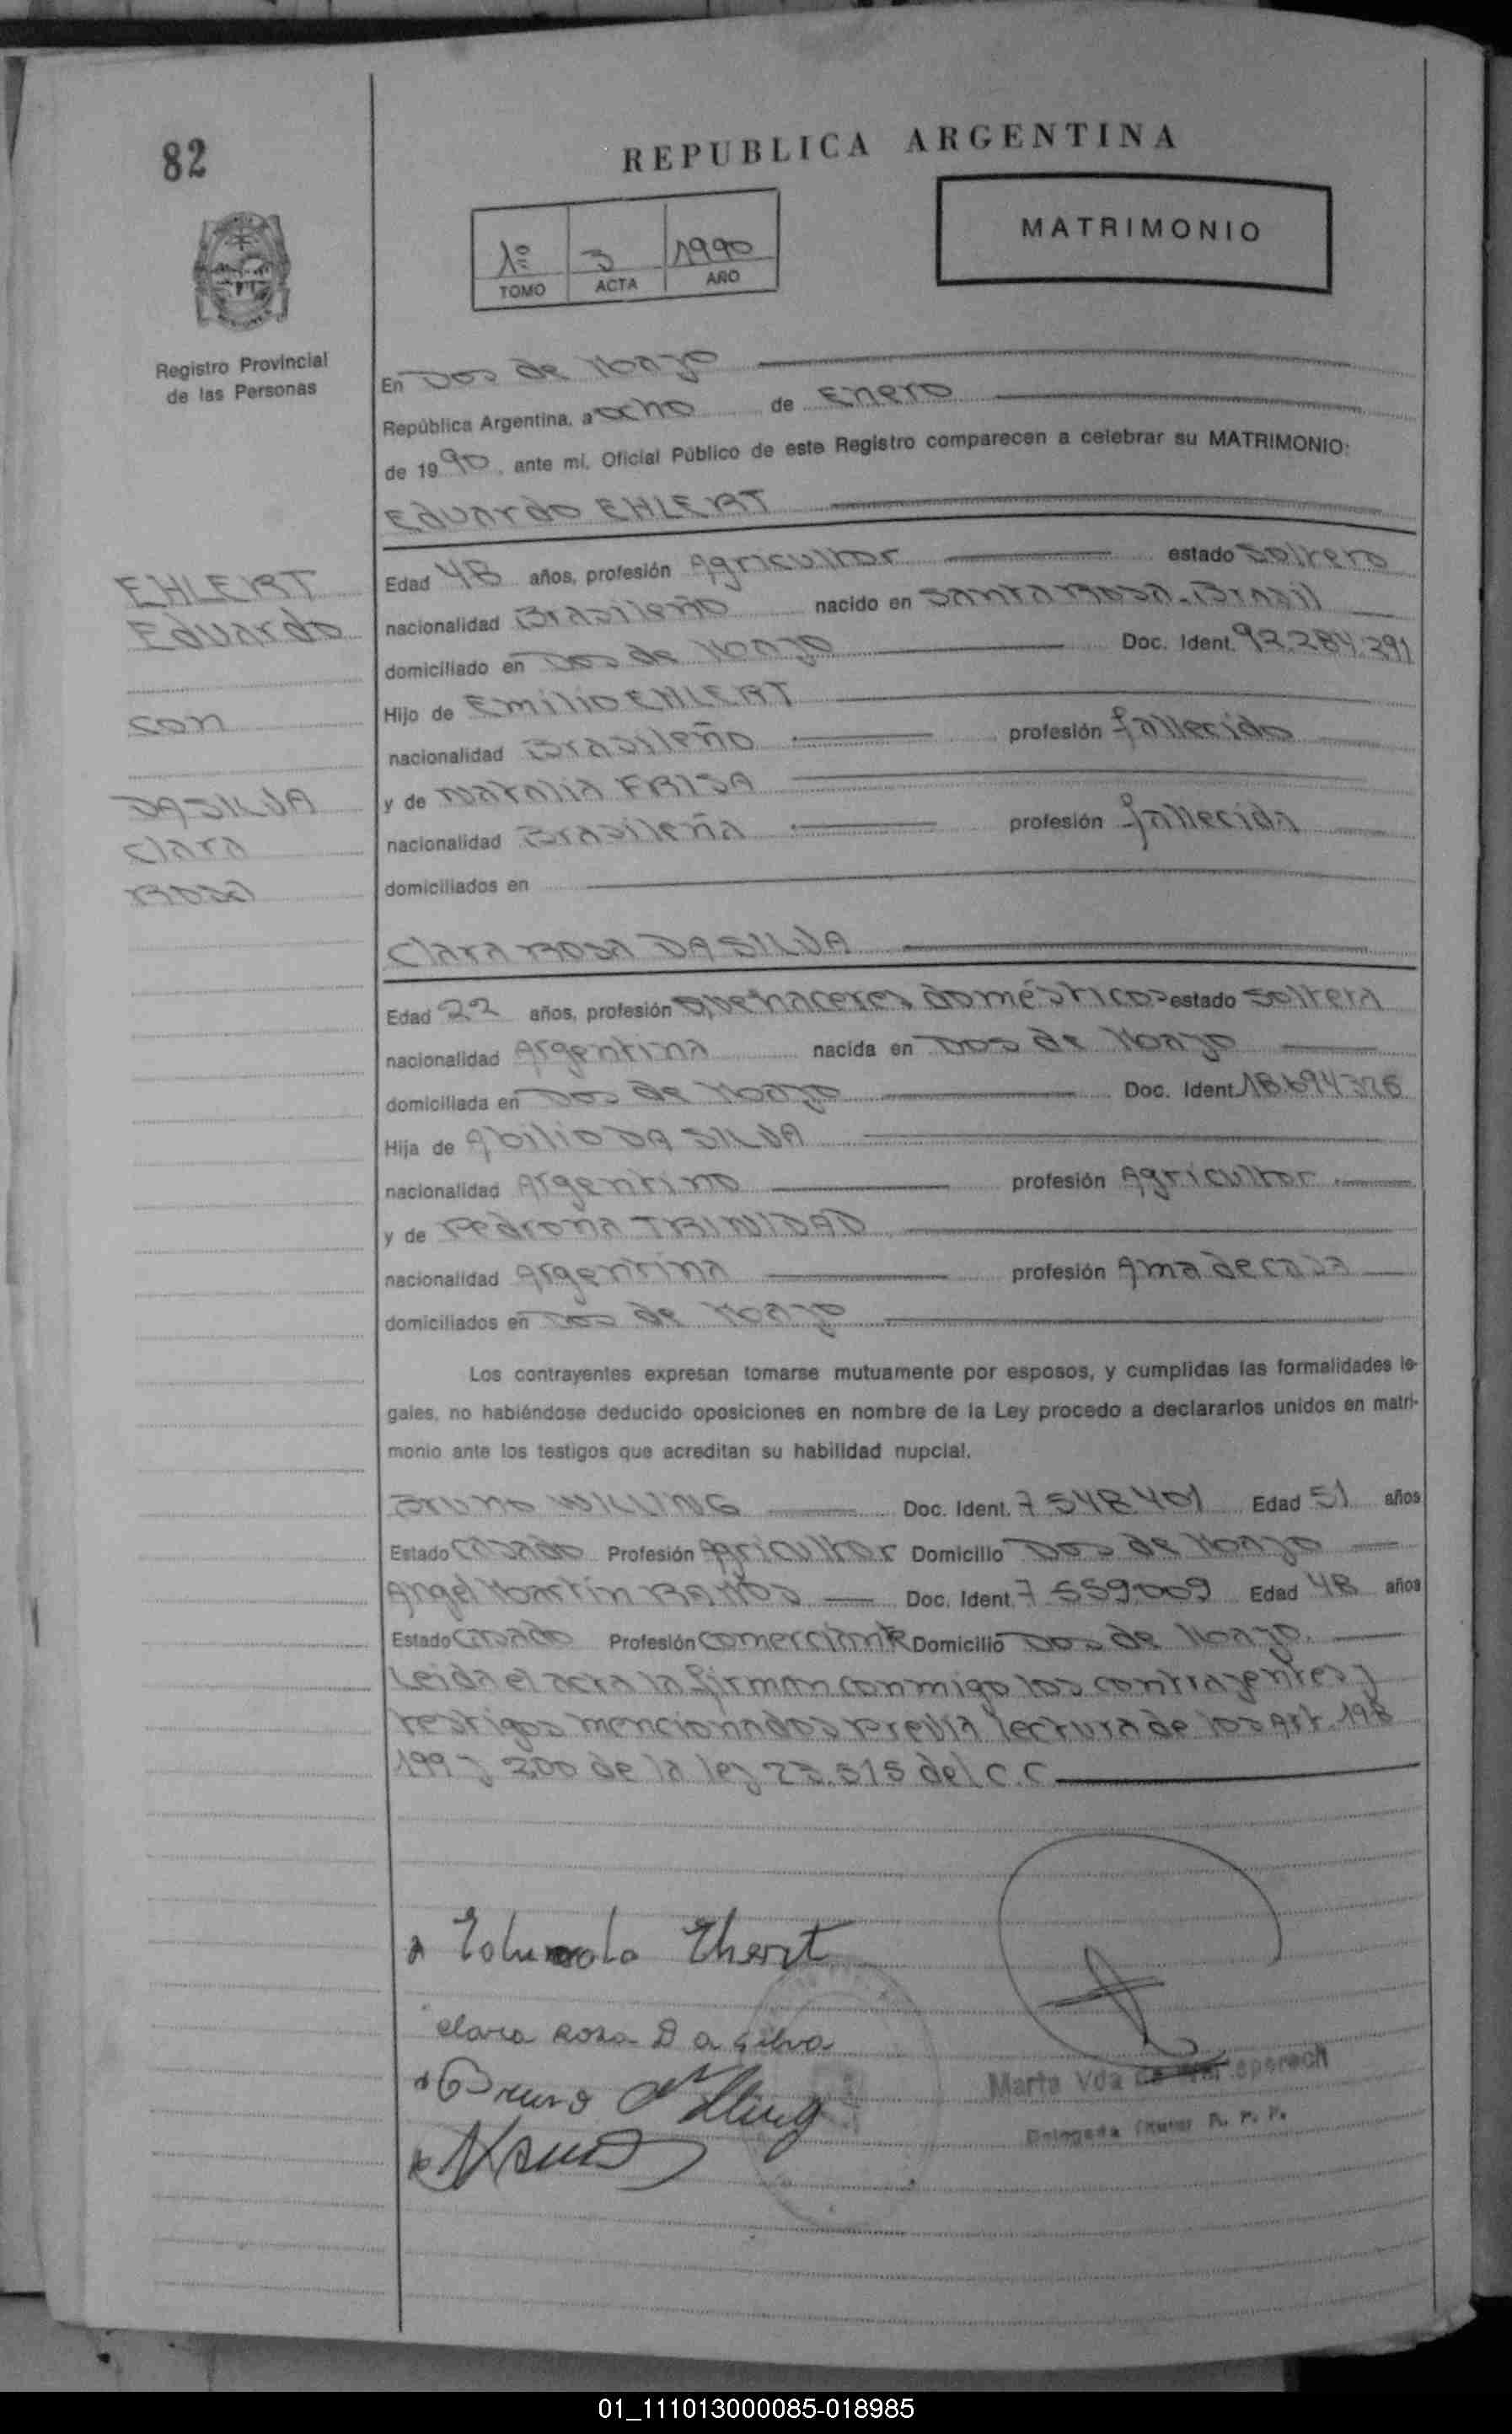 82
REPUBLICA ARGENTINA
1º 3 1990
TOMO ACTA AÑO
MATRIMONIO
Registro Provincial
de las Personas
En Dos de Mayo
República Argentina, a ocho de Enero
de 1990, ante mi, Oficial Público de este Registro comparecen a celebrar su MATRIMONIO:
Eduardo EHLERT
EHLERT
Eduardo
con
DA SILVA
Clara
Rosa
Edad 48 años, profesión Agricultor estado Soltero
nacionalidad Brasileño nacido en Santa Rosa-Brasil
domiciliado en Dos de Mayo Doc. Ident. 92.284.391
Hijo de Emilio EHLERT
nacionalidad Brasileño profesión fallecido
y de Natalia FRISA
nacionalidad Brasileña profesión fallecida
domiciliados en
Clara Rosa DA SILVA
Edad 22 años, profesión quehaceres domésticos estado Soltera
nacionalidad Argentina nacida en Dos de Mayo
domiciliada en Dos de Mayo Doc. Ident. 18.694.326
Hija de Abilio DA SILVA
nacionalidad Argentino profesión Agricultor
y de Pedrona TRINIDAD
nacionalidad Argentina profesión Ama de casa
domiciliados en Dos de Mayo
Los contrayentes expresan tomarse mutuamente por esposos, y cumplidas las formalidades le-
gales, no habiéndose deducido oposiciones en nombre de la Ley procedo a declararlos unidos en matri-
monio ante los testigos que acreditan su habilidad nupcial.
Bruno WILLING Doc. Ident. 7.548.401 Edad 51 años
Estado Casado Profesión Agricultor Domicilio Dos de Mayo
Angel Martin RAMOS Doc. Ident. 7.559.009 Edad 48 años
Estado Casado Profesión Comerciante Domicilio Dos de Mayo.
Leida el acta la firman conmigo los contrayentes y
testigos mencionados previa lectura de los Art. 198
199 y 200 de la ley 23.515 del C.C.
Eduardo Ehlert
Clara Rosa Da Silva
Bruno Willing
Marta Vda de
Delegada R. P. P.
01_111013000085-018985